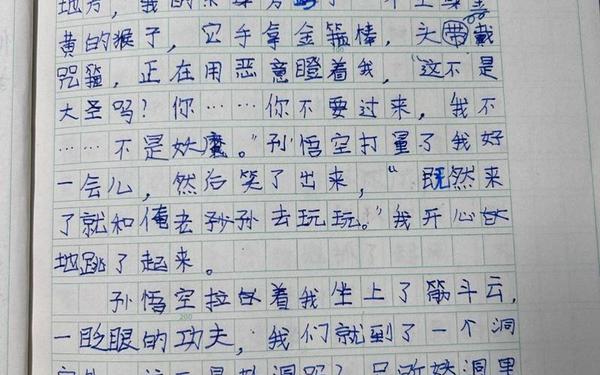 地方，我的
黄的猴子，它手拿金箍棒，头戴
咒箍，正在用恶意瞪着我，"这不是
大圣吗？你……你不要过来，我不
……不是妖魔。"孙悟空打量了我好
一会儿，然后笑了出来，"既然来
了就和俺老孙去玩玩。"我开心
地跳了起来。
孙悟空拉着我坐上了筋斗云，
一眨眼的功夫，我们就到了一个洞